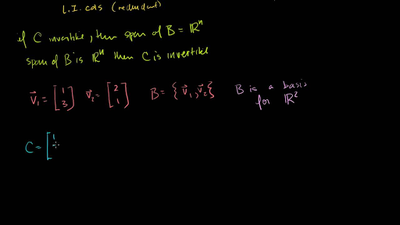 L.I. cols (redundant)
if C invertible, then span of B = ℝⁿ
span of B is ℝⁿ then C is invertible
v⃗₁ = [1 3] v⃗₂ = [2 1] B = {v⃗₁, v⃗₂} B is a basis
for ℝ²
C = [1